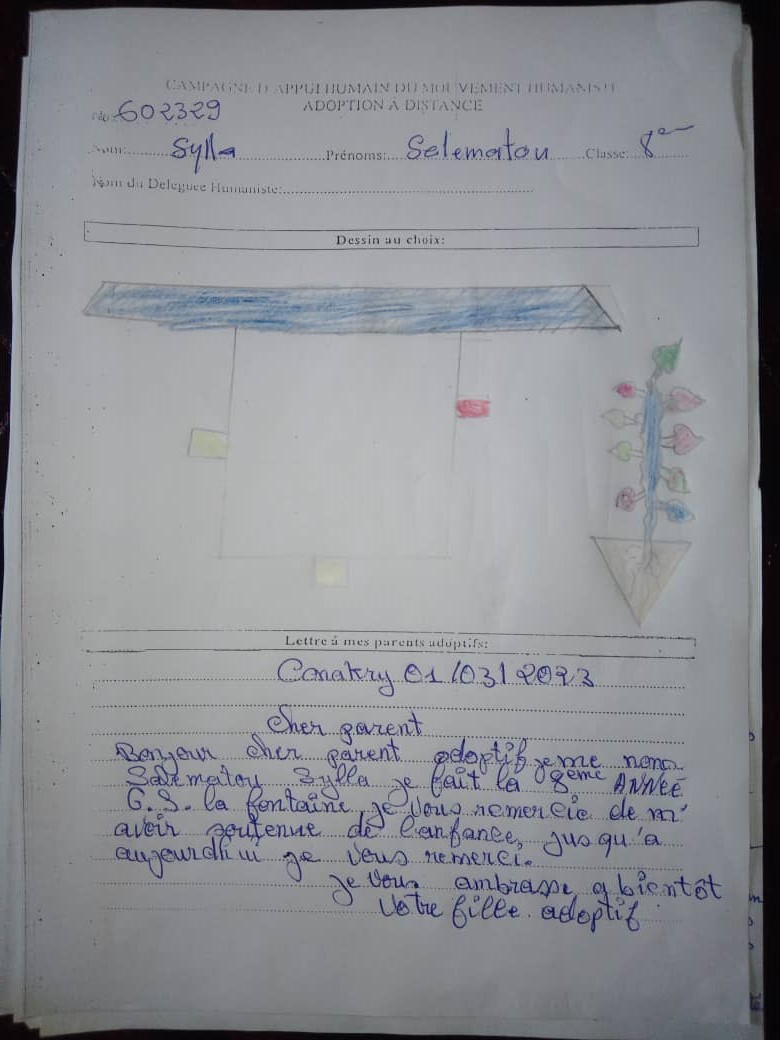 CAMPAGNE D'APPUI HUMAIN DU MOUVEMENT HUMANISTE
ADOPTION À DISTANCE
No: 602329
Nom: Sylla Prénoms: Salematou Classe: 8e
Nom du Deleguee Humaniste:
Dessin au choix:
Lettre á mes parents adoptifs:
Conakry 01/03/2023
Cher parent
Bonjour cher parent adoptif je me nome
Salematou Sylla je fait la 8eme ANNÉE
G.S. la fontaine je vous remercie de m'
avoir soutenue de l'anfance, jusqu'a
aujourdhui je vous remerci.
je vous ambrasse a bientôt
Votre fille adoptif